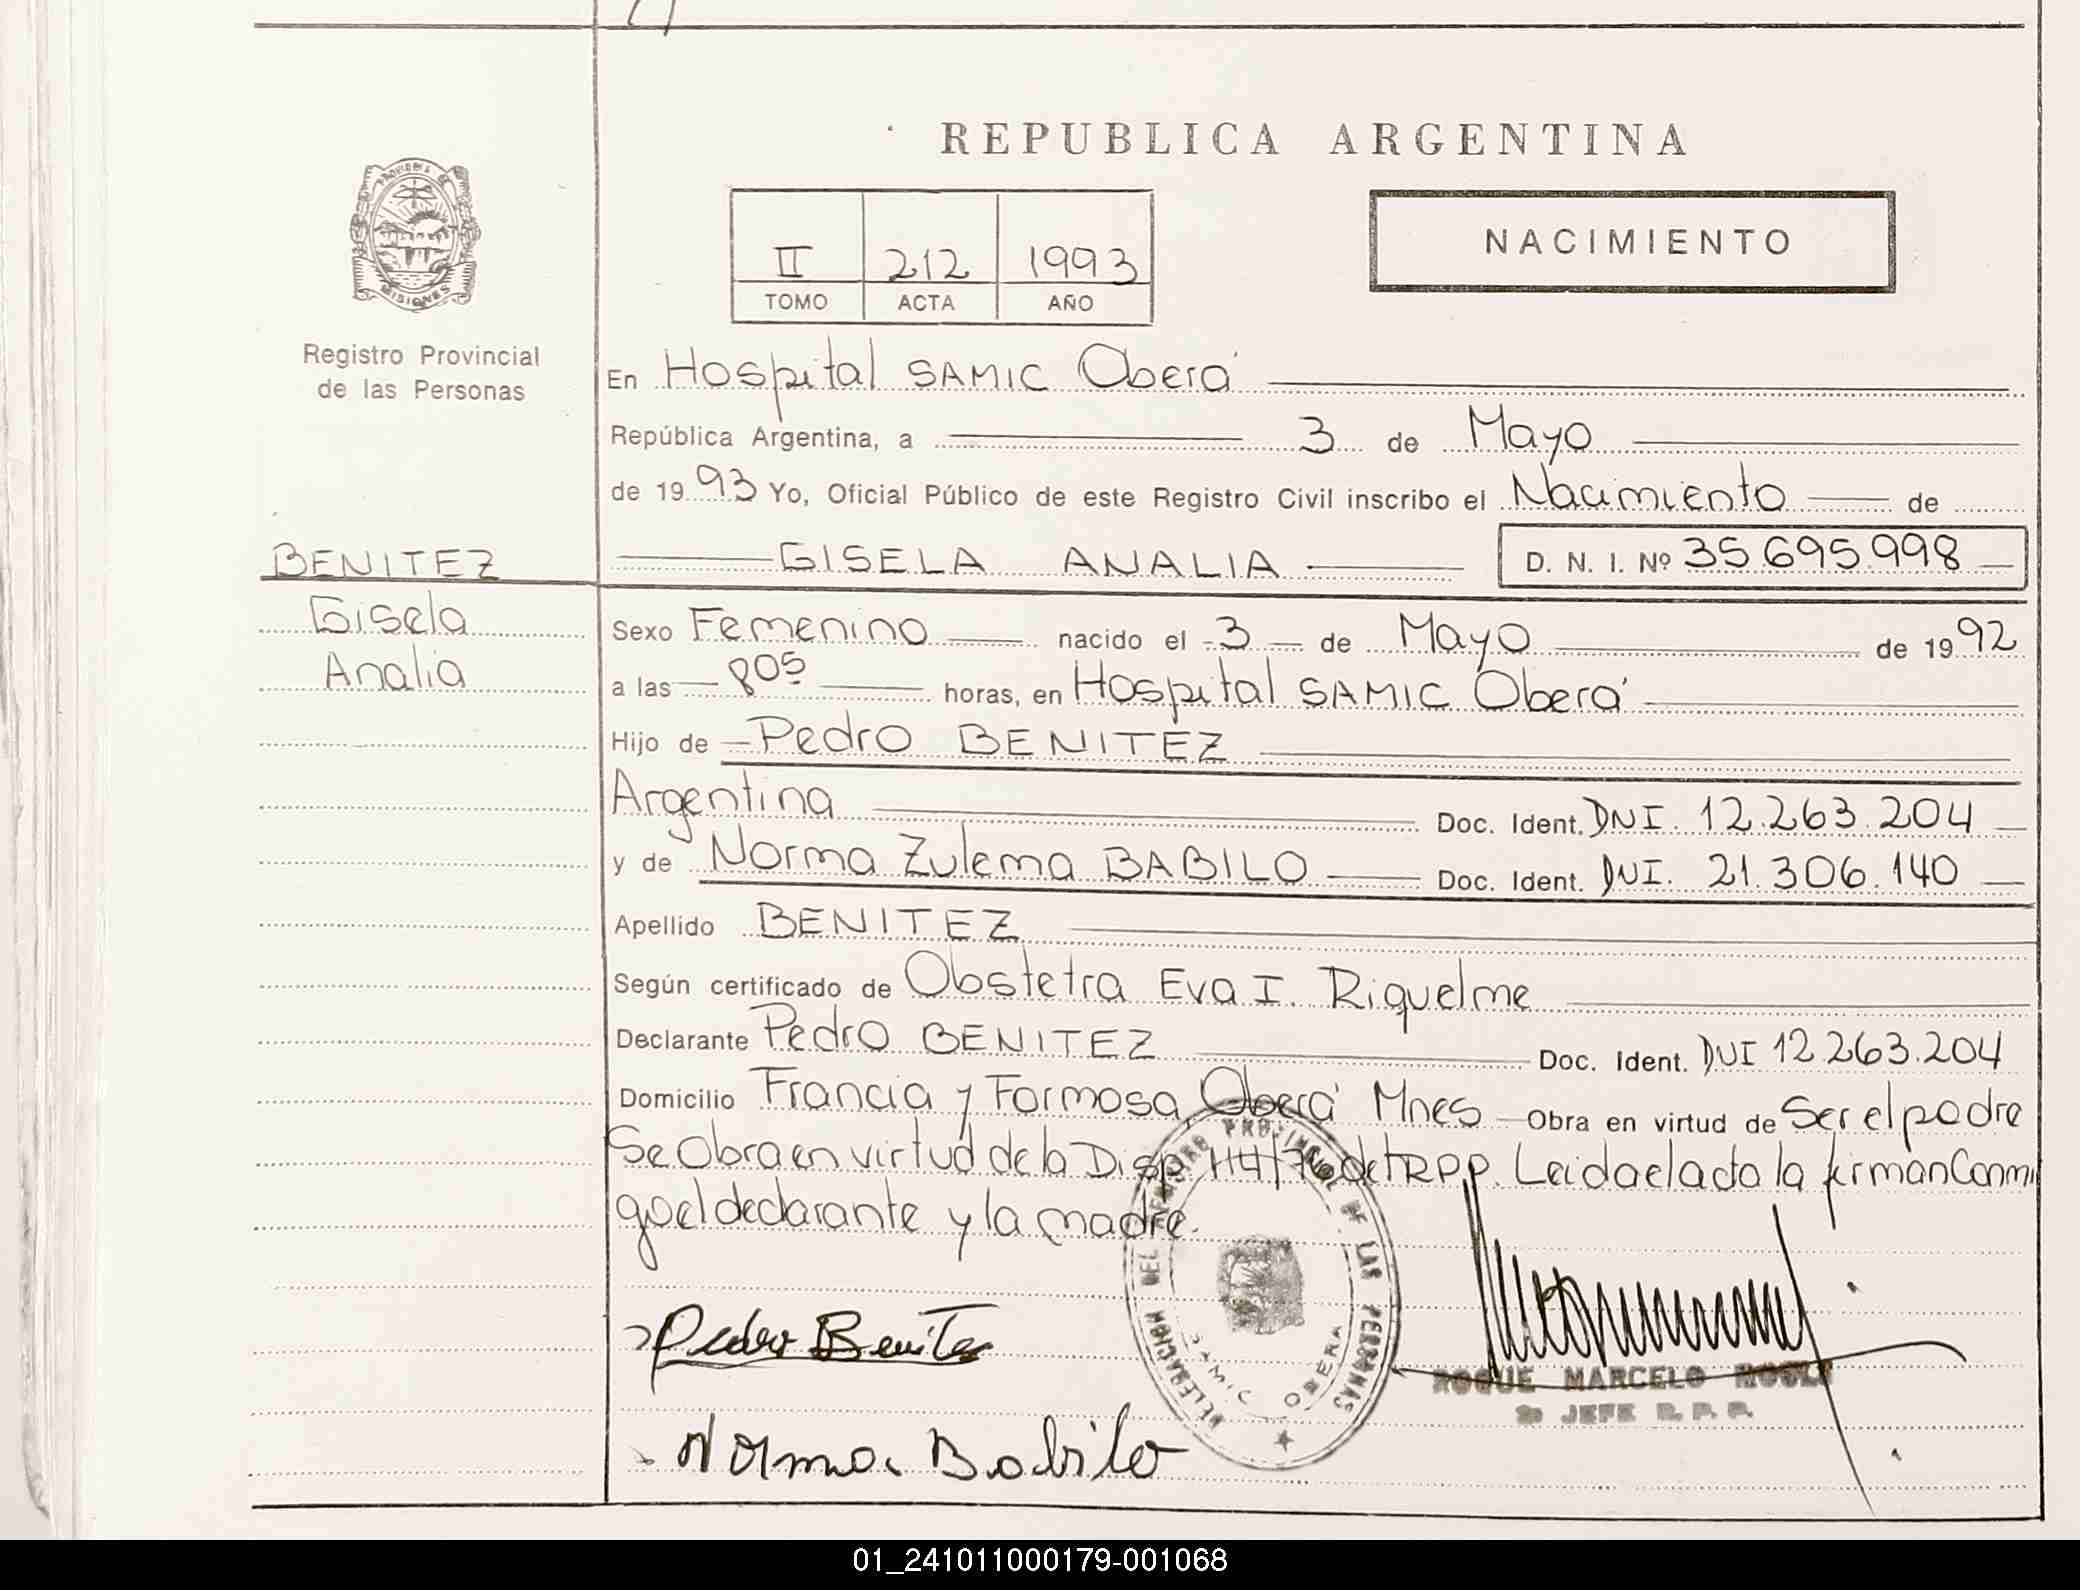 REPUBLICA ARGENTINA
PROVINCIA DE
MISIONES
II 212 1993
TOMO ACTA AÑO
NACIMIENTO
Registro Provincial
de las Personas
En Hospital SAMIC Oberá
República Argentina, a 3 de Mayo
de 1993 Yo, Oficial Público de este Registro Civil inscribo el Nacimiento de
BENITEZ
GISELA ANALIA D. N. I. Nº 35.695.998
Gisela
Analia
Sexo Femenino nacido el 3 de Mayo de 1992
a las 805 horas, en Hospital SAMIC Oberá
Hijo de Pedro BENITEZ
Argentina Doc. Ident. DNI. 12.263.204
y de Norma Zulema BABILO Doc. Ident. DNI. 21.306.140
Apellido BENITEZ
Según certificado de Obstetra Eva I. Riquelme
Declarante Pedro BENITEZ Doc. Ident. DNI 12.263.204
Domicilio Francia y Formosa Oberá Mnes Obra en virtud de Ser el padre
Se Obra en virtud de la Disp. 114/76 del RPP. Leida el acta la firman Conmi
go el declarante y la madre.
DELEGACION DEL REGISTRO PROVINCIAL DE LAS PERSONAS
SAMIC OBERA
Pedro Benitez
ROQUE MARCELO
2o JEFE R. P. P.
Norma Babilo
01_241011000179-001068